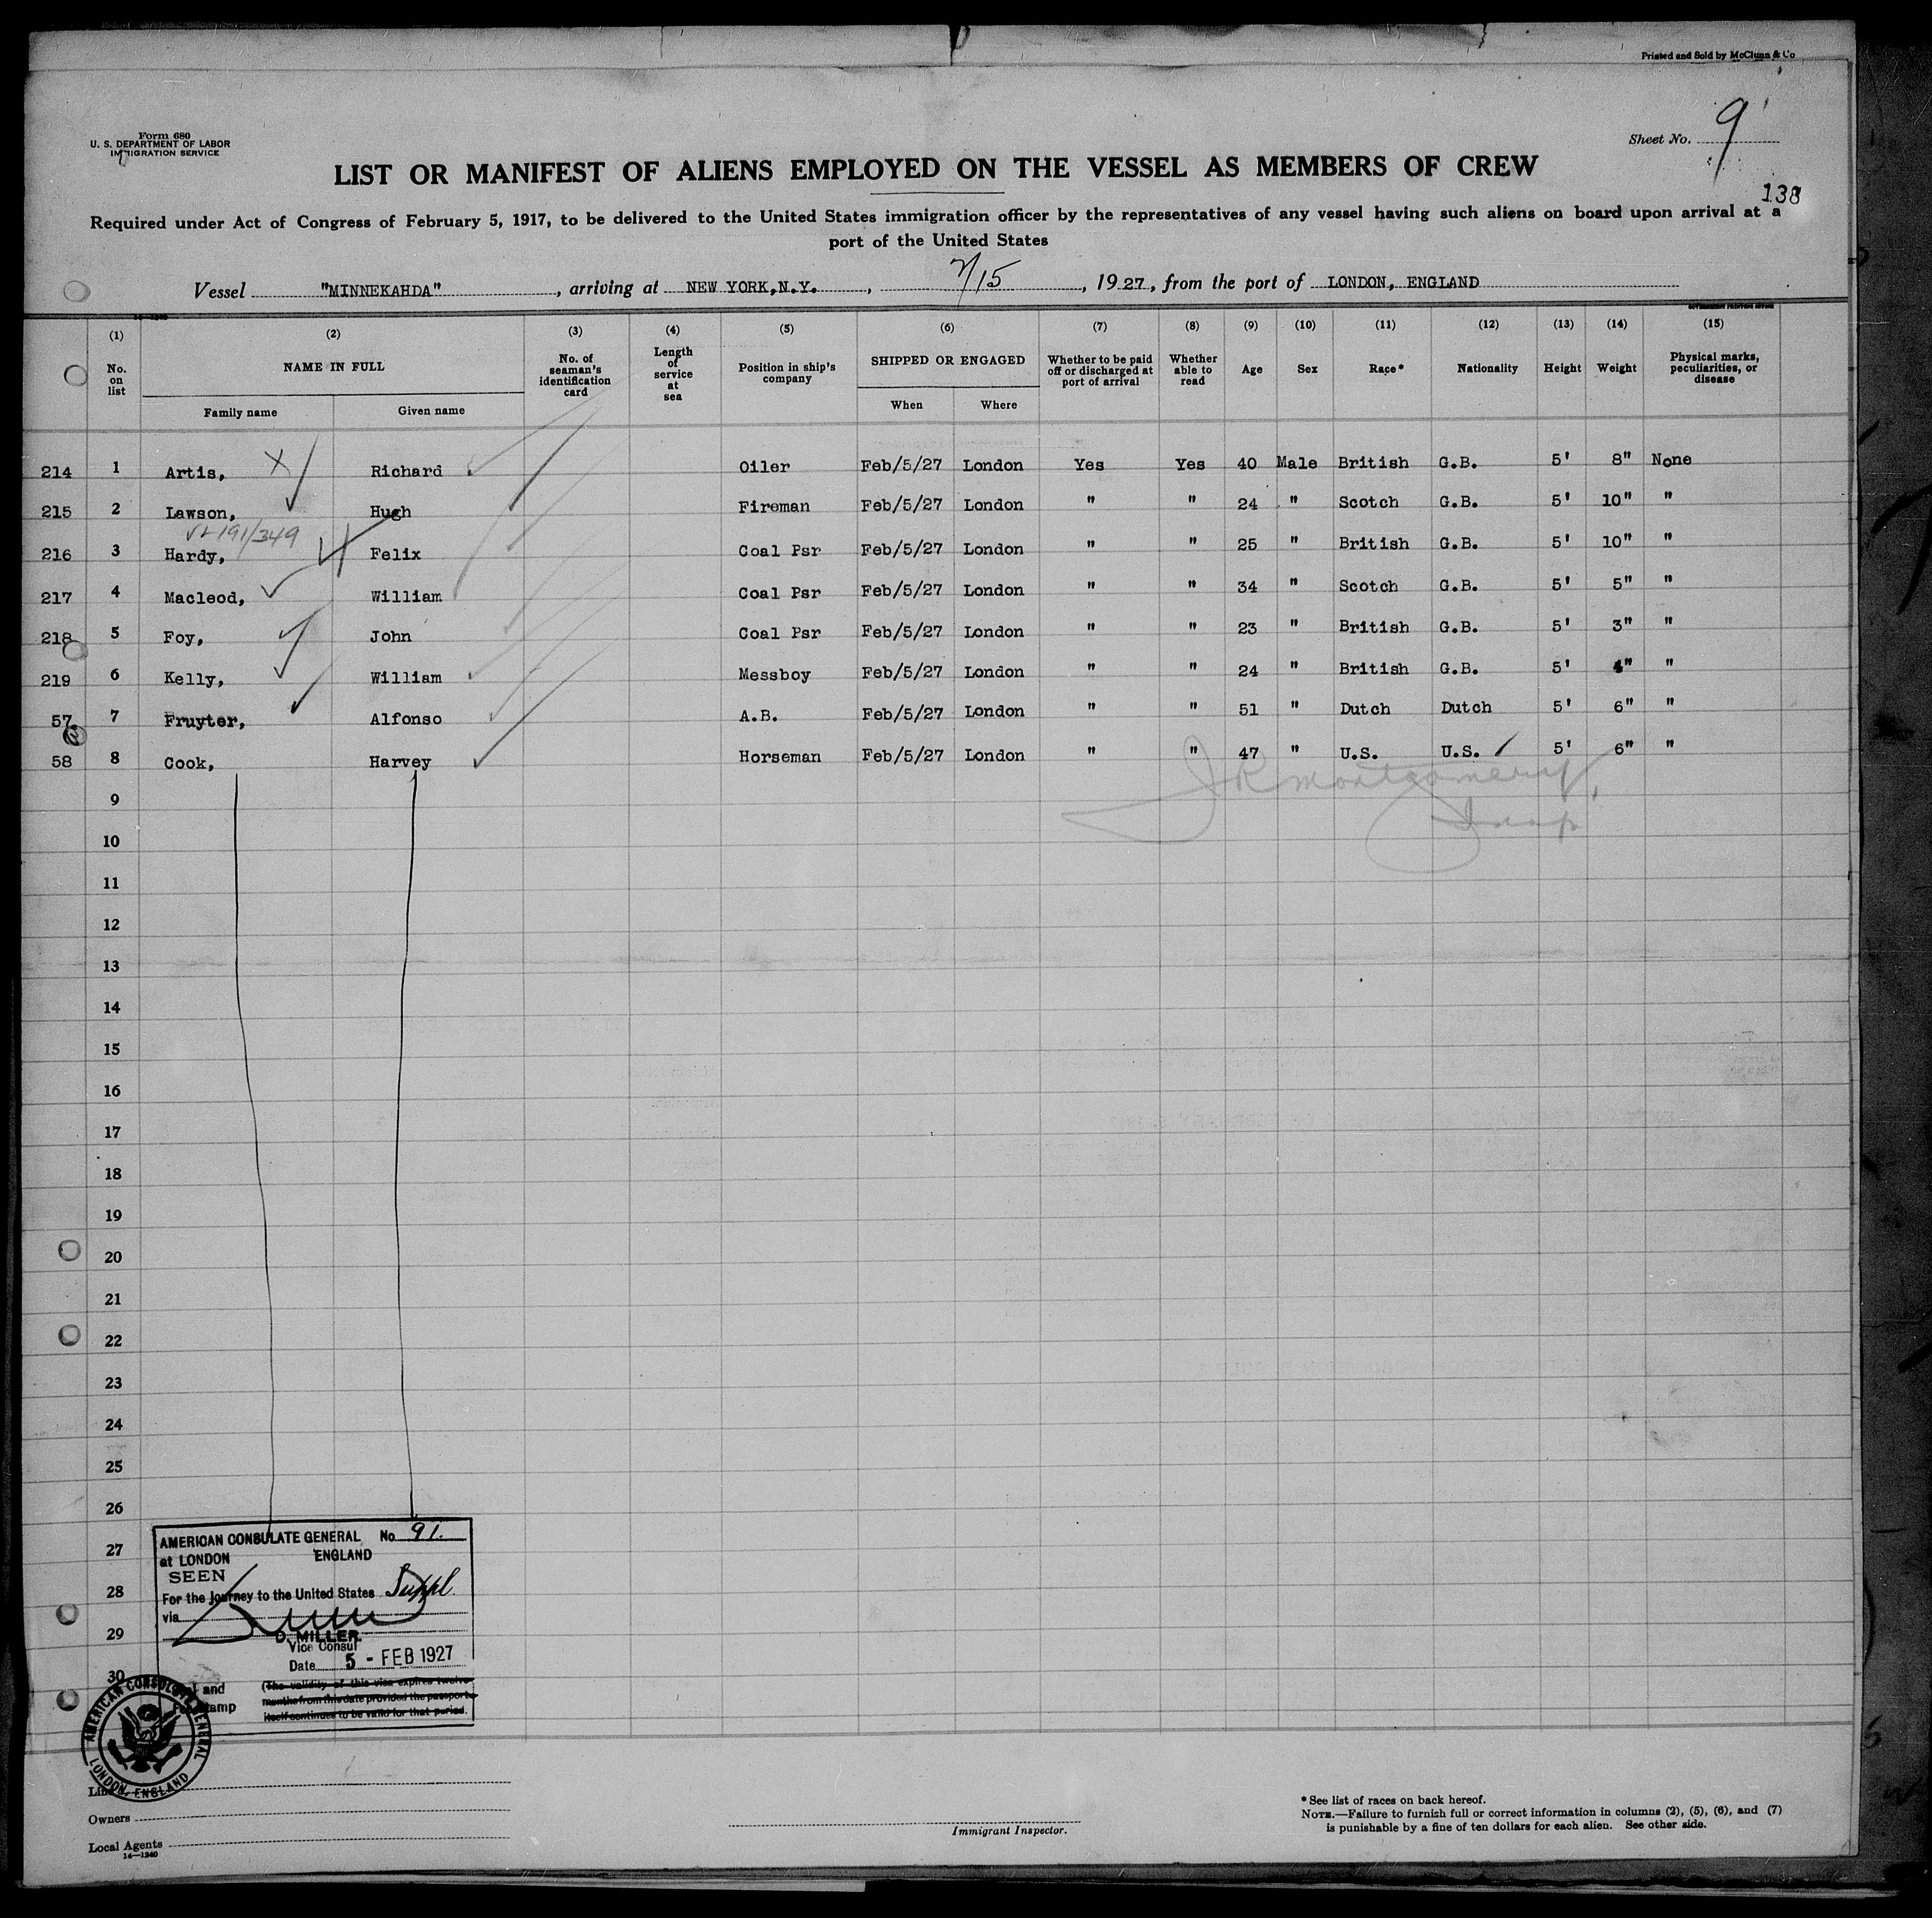 Printed and Sold by McClunn & Co
Form 680
U. S. DEPARTMENT OF LABOR
IMMIGRATION SERVICE
Sheet No. 9
LIST OR MANIFEST OF ALIENS EMPLOYED ON THE VESSEL AS MEMBERS OF CREW
138
Required under Act of Congress of February 5, 1917, to be delivered to the United States immigration officer by the representatives of any vessel having such aliens on board upon arrival at a
port of the United States
Vessel "MINNEKAHDA", arriving at NEW YORK,N.Y., 2/15, 1927, from the port of LONDON, ENGLAND
(1) (2) (3) (4) (5) (6) (7) (8) (9) (10) (11) (12) (13) (14) (15)
No. on list NAME IN FULL No. of seaman's identification card Length of service at sea Position in ship's company SHIPPED OR ENGAGED Whether to be paid off or discharged at port of arrival Whether able to read Age Sex Race* Nationality Height Weight Physical marks, peculiarities, or disease
Family name Given name When Where
214 1 Artis, Richard Oiler Feb/5/27 London Yes Yes 40 Male British G.B. 5' 8" None
215 2 Lawson, Hugh Fireman Feb/5/27 London " " 24 " Scotch G.B. 5' 10" "
191/349
216 3 Hardy, Felix Coal Psr Feb/5/27 London " " 25 " British G.B. 5' 10" "
217 4 Macleod, William Coal Psr Feb/5/27 London " " 34 " Scotch G.B. 5' 5" "
218 5 Foy, John Coal Psr Feb/5/27 London " " 23 " British G.B. 5' 3" "
219 6 Kelly, William Messboy Feb/5/27 London " " 24 " British G.B. 5' 4" "
57 7 Fruyter, Alfonso A.B. Feb/5/27 London " " 51 " Dutch Dutch 5' 6" "
58 8 Cook, Harvey Horseman Feb/5/27 London " " 47 " U.S. U.S. 5' 6" "
JR Montgomery,
Insp
9
10
11
12
13
14
15
16
17
18
19
20
21
22
23
24
25
26
27
28
29
30
AMERICAN CONSULATE GENERAL No 91.
at LONDON ENGLAND
SEEN
For the Journey to the United States Suppl.
via
D. MILLER
Vice Consul
Date 5 - FEB 1927
and
stamp
(The validity of this visa expires twelve
months from this date provided the passport
itself continues to be valid for that period.
AMERICAN CONSULATE GENERAL
LONDON, ENGLAND
Line
Owners
Local Agents
14—1240
Immigrant Inspector.
* See list of races on back hereof.
NOTE.—Failure to furnish full or correct information in columns (2), (5), (6), and (7)
is punishable by a fine of ten dollars for each alien. See other side.